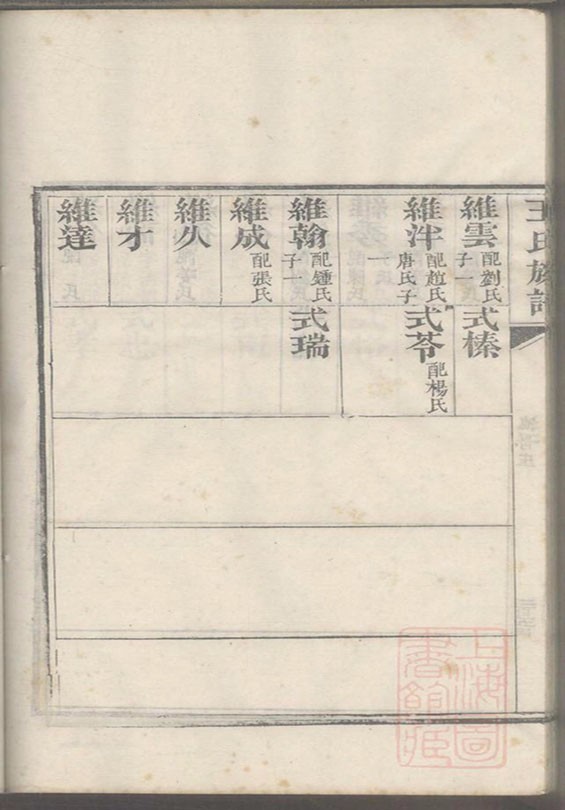 王氏族譜
維雲 配劉氏 子一
式榛
維泮 配趙氏 唐氏子一
式苓 配楊氏
維翰 配鍾氏 子一
式瑞
維成 配張氏
維久
維才
維達
上海圖書館藏